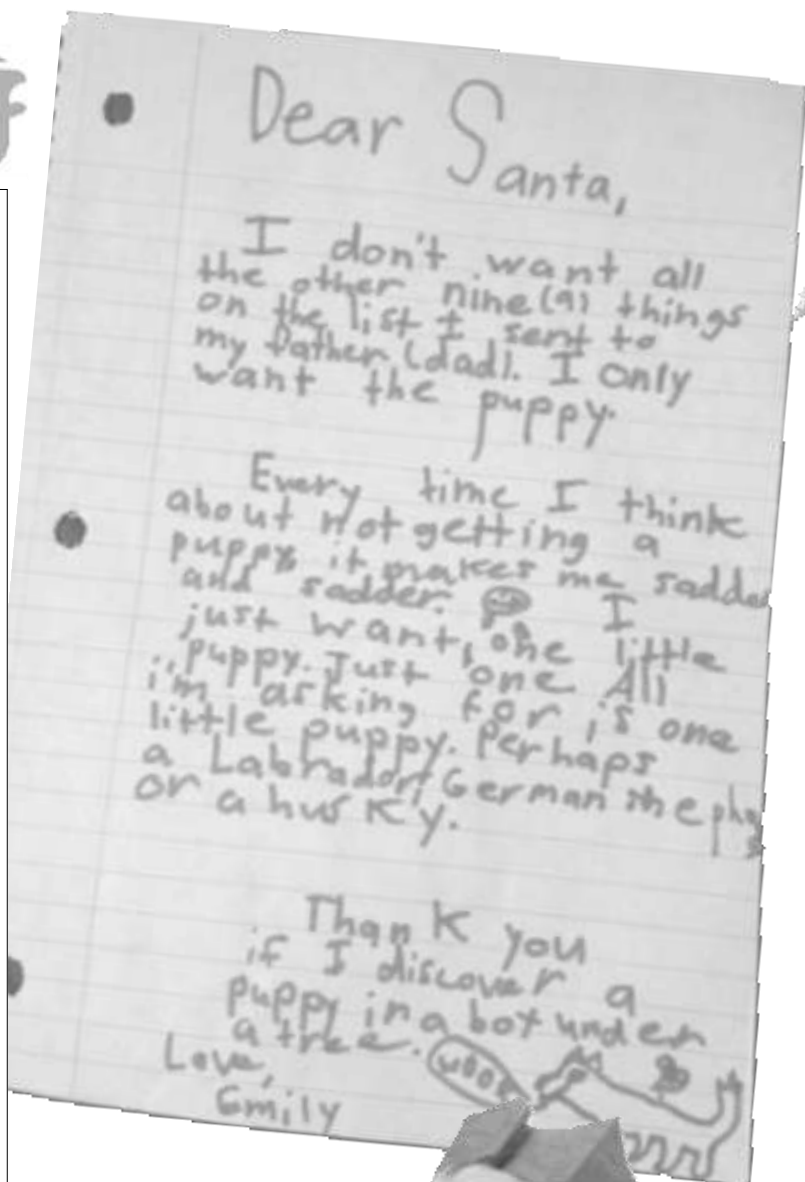 Dear Santa,
I don't want all
the other nine (9) things
on the list I sent to
my father (dad). I only
want the puppy.
Every time I think
about not getting a
puppy it makes me sadder
and sadder. I
just want one little
puppy. Just one All
i'm asking for is one
little puppy. Perhaps
a Labrador, German
or a husky.
Thank you
if I discover a
puppy in a box under
a tree.
Love,
Emily